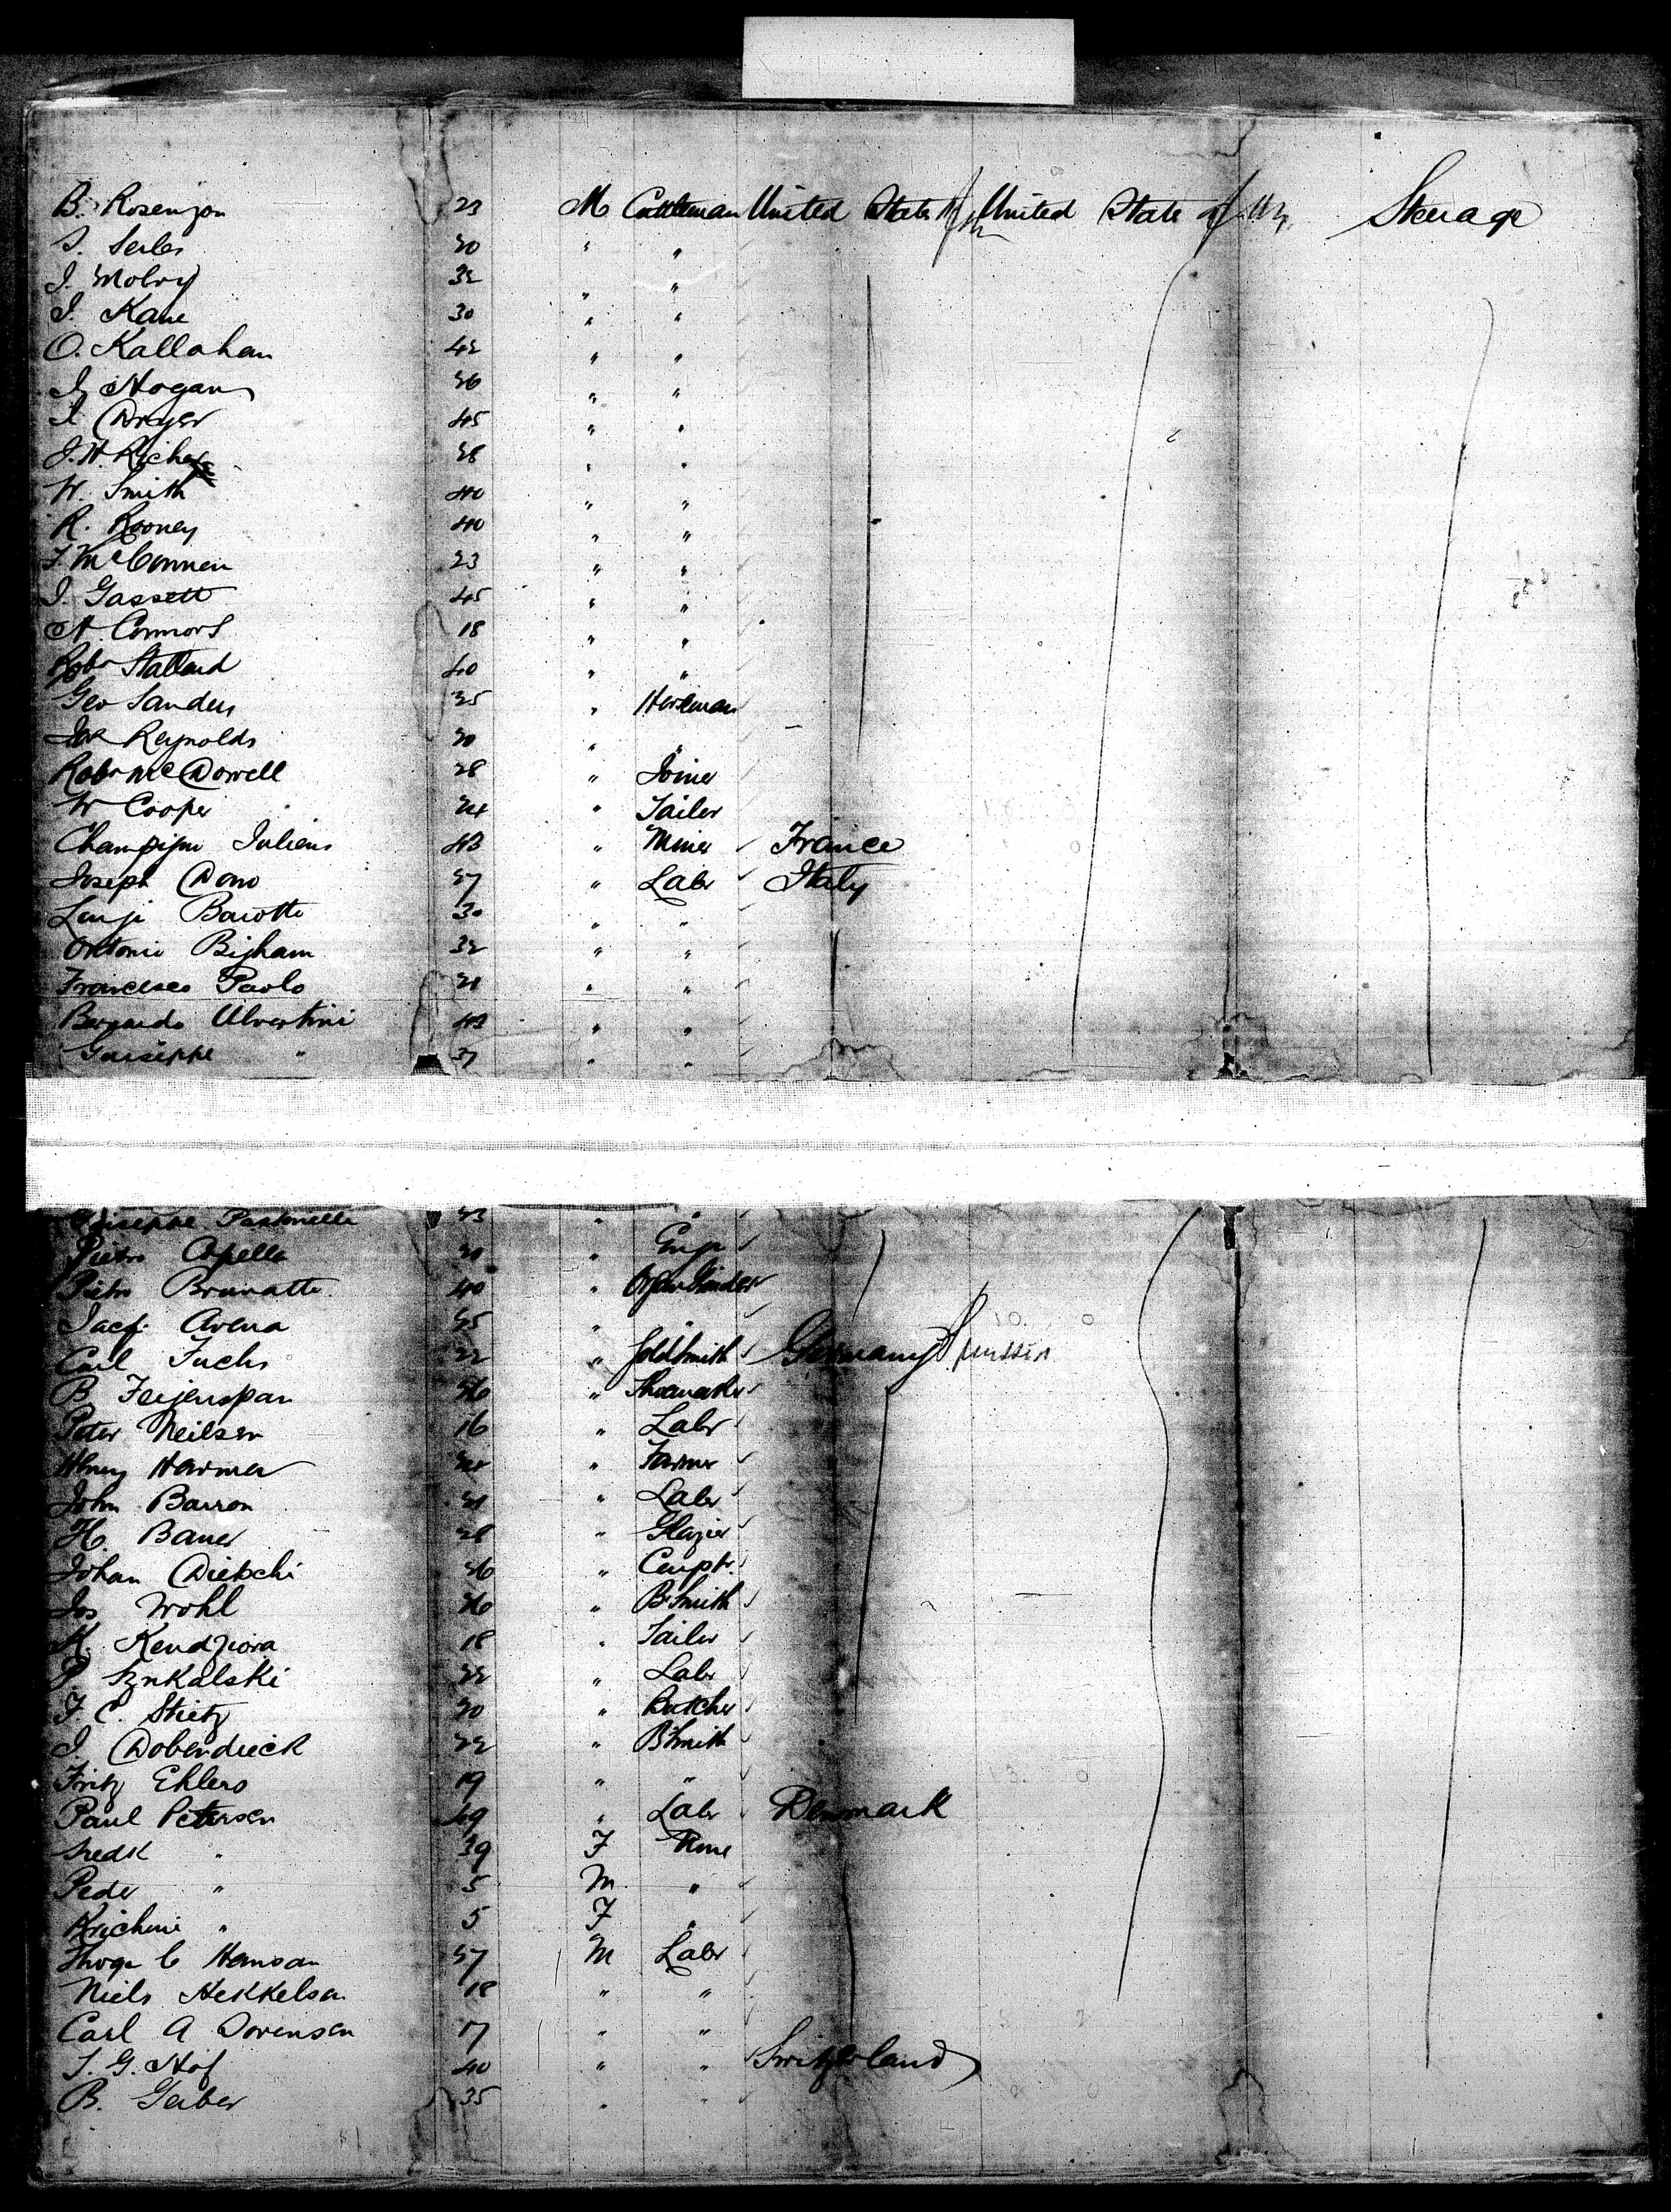 B. Rosenzon 23 M Cattleman United State of Am United State of Am. Steerage
S. Serles 30 " "
J. Moloy 32 " "
J. Kane 30 " "
O. Kallahan 42 " "
J. Hogan 26 " "
J. Dwyer 45 " "
J. H. 28 " "
W. Smith 40 " "
R. Rooney 40 " "
23 " "
J. Gassett 45 " "
N. Connors 18 " "
Robt Stallard 40 " "
Geo Sanders 35 " Horseman
Jos Reynolds 30 " "
Robt McDowell 28 " Joiner
W Cooper 24 " Tailor
Champigne Juliens 43 " Miner France
Joseph Dono 27 " Labr Italy
Luigi Barotto 30 " "
Antonio Bigham 32 " "
Francesco Paolo 21 " "
Bernardo Alvertini 43 " "
Guiseppe " 37 " "
Guiseppe Pastorielle 43 " "
Pietro Capella 30 " Emp
Pietro Brunatto 40 " Organ Grinder
Jacq. Avena 25 " "
Carl Fuchs 22 " Goldsmith Germany Prussia
B. Feyenspan 26 " Shoemaker
Peter Neilsen 16 " Labr
Henry Harmer 24 " Farmer
John Barron 21 " Labr
H. Bauer 28 " Glazier
Johan Dietschi 26 " Carptr.
Jos Wohl 26 " BSmith
K. Kendziora 18 " Tailor
P. Synkalski 22 " Labr
F. C. Stietz 20 " Butcher
J. Doberdieck 22 " BSmith
Fritz Ehlers 19 " "
Paul Petersen 49 " Labr Denmark
" 39 F None
Peder " 5 M "
" 5 F "
C Hansan 27 M Labr
Niels Hekkelsen 18 " "
Carl A Sorensen 17 " "
J. G. Hof 40 " " Switzerland
B. Gerber 35 " "